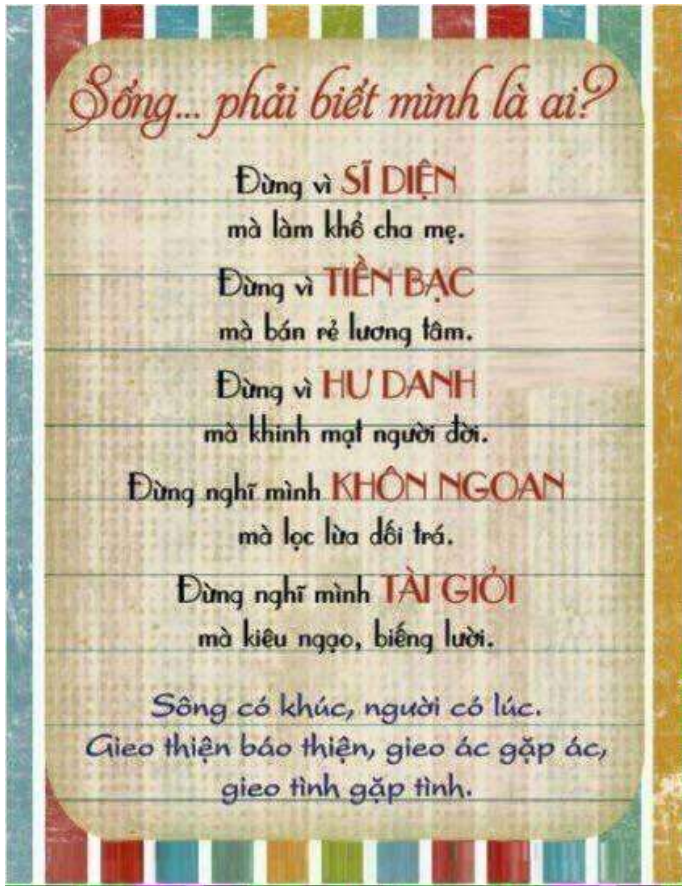 Sống... phải biết mình là ai?
Đừng vì SĨ DIỆN
mà làm khổ cha mẹ.
Đừng vì TIỀN BẠC
mà bán rẻ lương tâm.
Đừng vì HƯ DANH
mà khinh mạt người đời.
Đừng nghĩ mình KHÔN NGOAN
mà lọc lừa dối trá.
Đừng nghĩ mình TÀI GIỎI
mà kiêu ngạo, biếng lười.
Sông có khúc, người có lúc.
Gieo thiện báo thiện, gieo ác gặp ác,
gieo tình gặp tình.